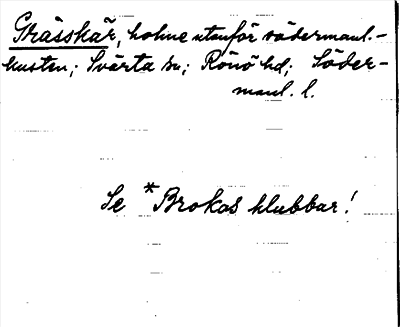 Grässkär, holme utanför södermanl.-
kusten; Svärta sn; Rönö hd; Söder-
manl. l.
Se *Brokas klubbar!